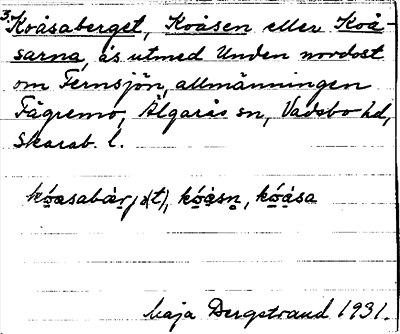 3. Koåsaberget, Koåsen eller Koå-
sarna, ås utmed Unden nordost
om Fernsjön, allmänningen
Fägremo, Älgarås sn, Vadsbo hd,
Skarab. l.
kóasabär, kóåsn, kóåsa
Maja Bergstrand 1931.